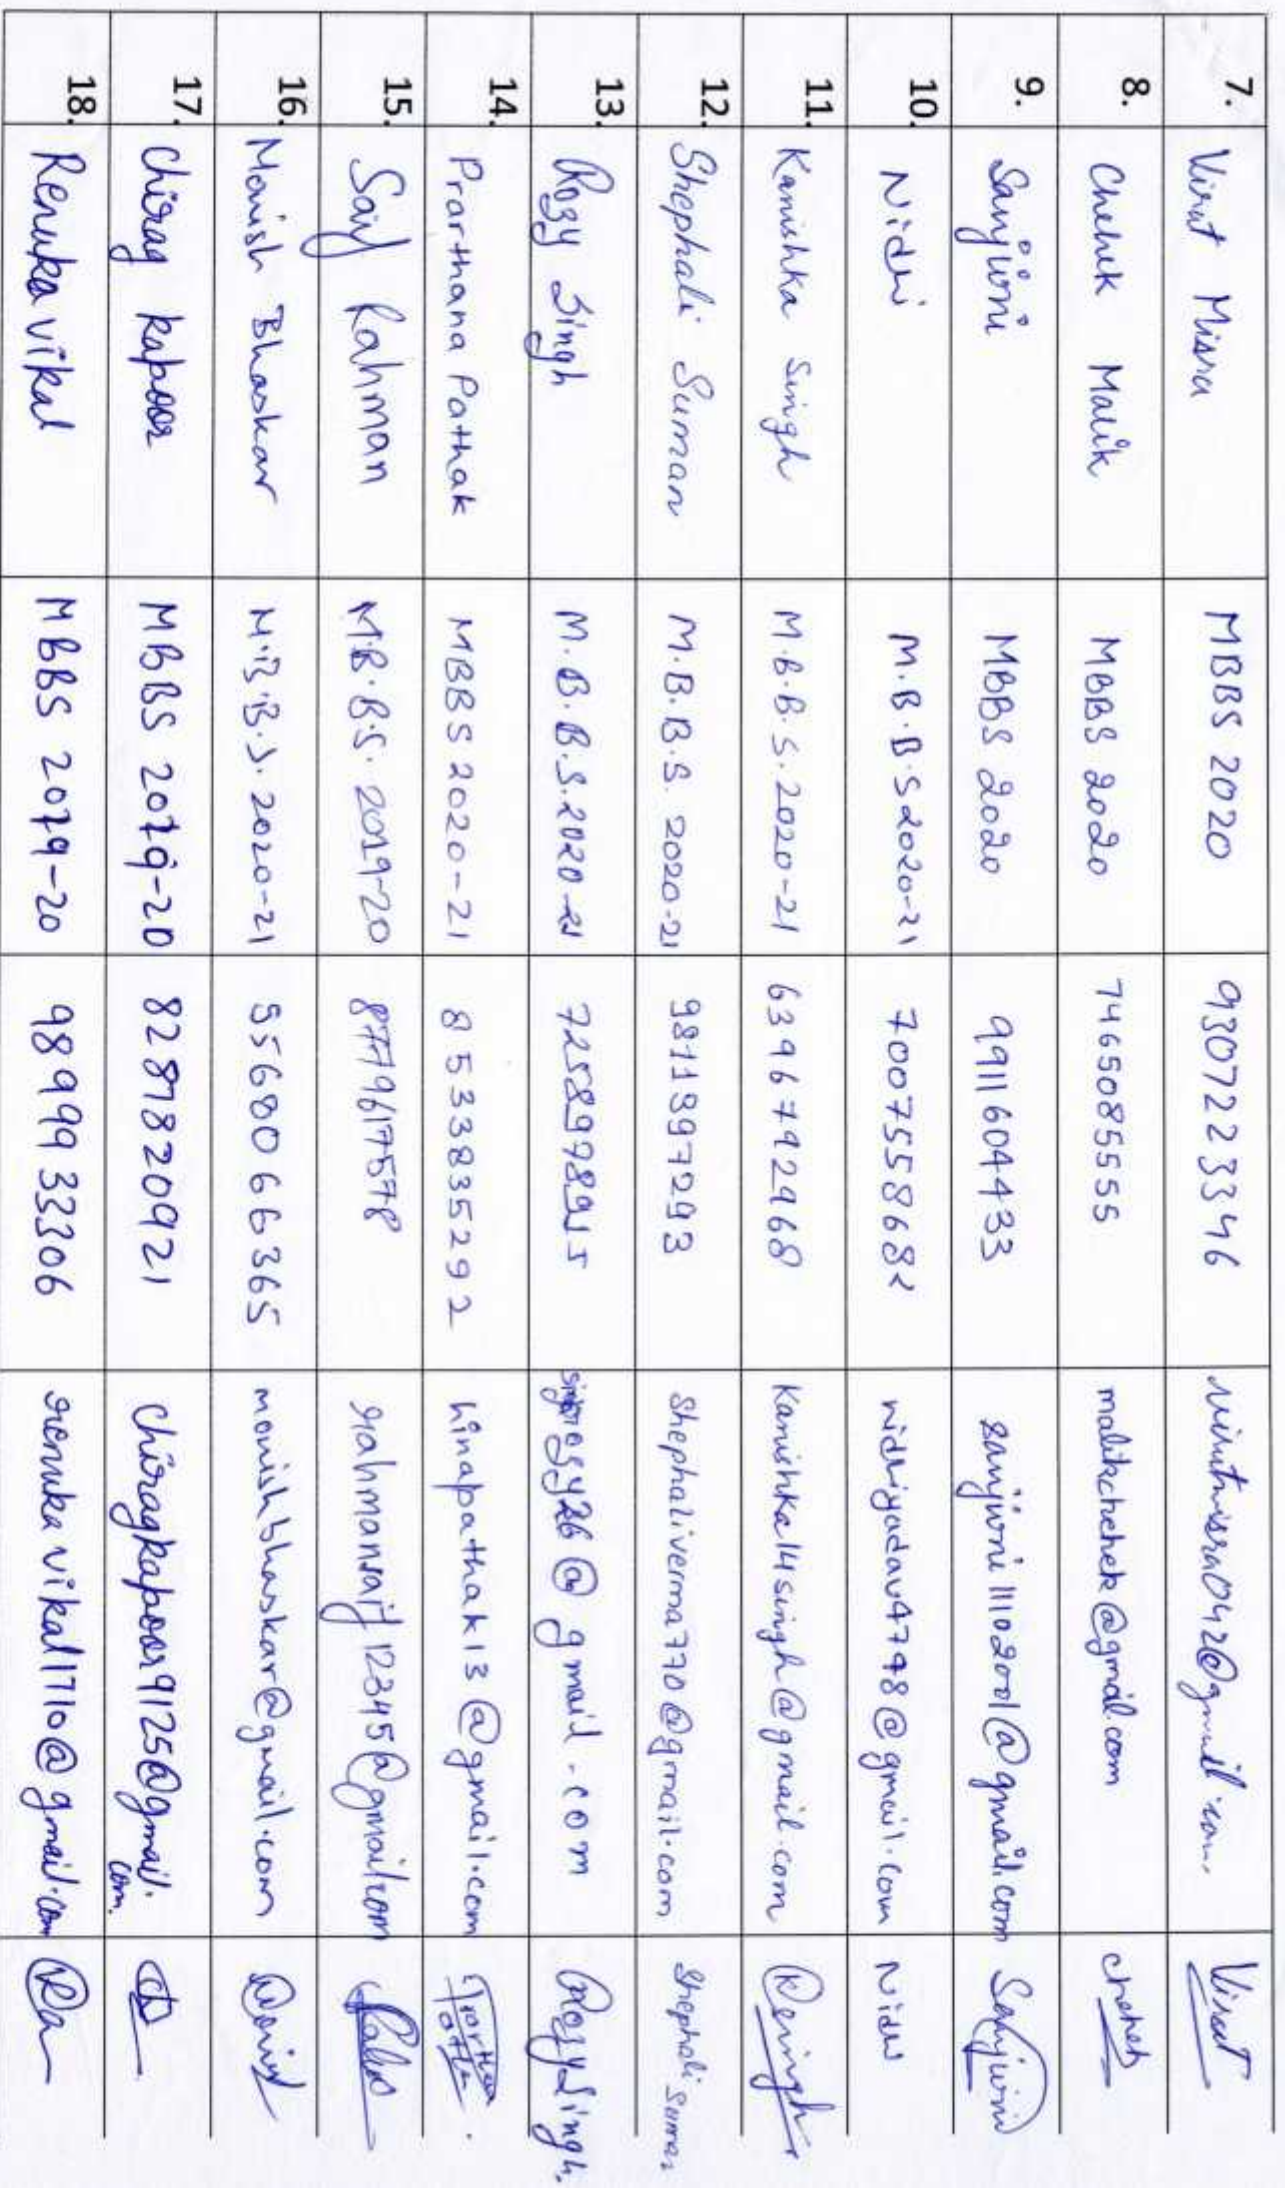 7. Virat Misra MBBS 2020 9307223346 Virat
8. Chehek Malik MBBS 2020 7465085555 malikchehek@gmail.com chehek
9. Sanjivni MBBS 2020 9911604433 sanjivni11102001@gmail.com Sanjivni
10. Nidhi M.B.B.S 2020-21 7007558682 nidhiyadav4798@gmail.com Nidhi
11. Kanishka Singh M.B.B.S. 2020-21 6396792968 Kanishka14singh@gmail.com
12. Shephali Suman M.B.B.S. 2020-21 9811997293 Shephaliverma770@gmail.com Shephali Suman
13. Rozy Singh M.B.B.S. 2020-21 Rozy Singh.
14. Prarthana Pathak MBBS 2020-21 8533835292 hinapathak13@gmail.com
15. Saif Rahman M.B.B.S. 2019-20 8779617578 rahmansaif12345@gmail.com
16. Monish Bhaskar M.B.B.S. 2020-21 monishbhaskar@gmail.com
17. Chirag kapoor MBBS 2019-20 8287820921 chiragkapoor9125@gmail.
com.
18. Renuka vikal MBBS 2019-20 9899933306 renukavikal1710@gmail.com